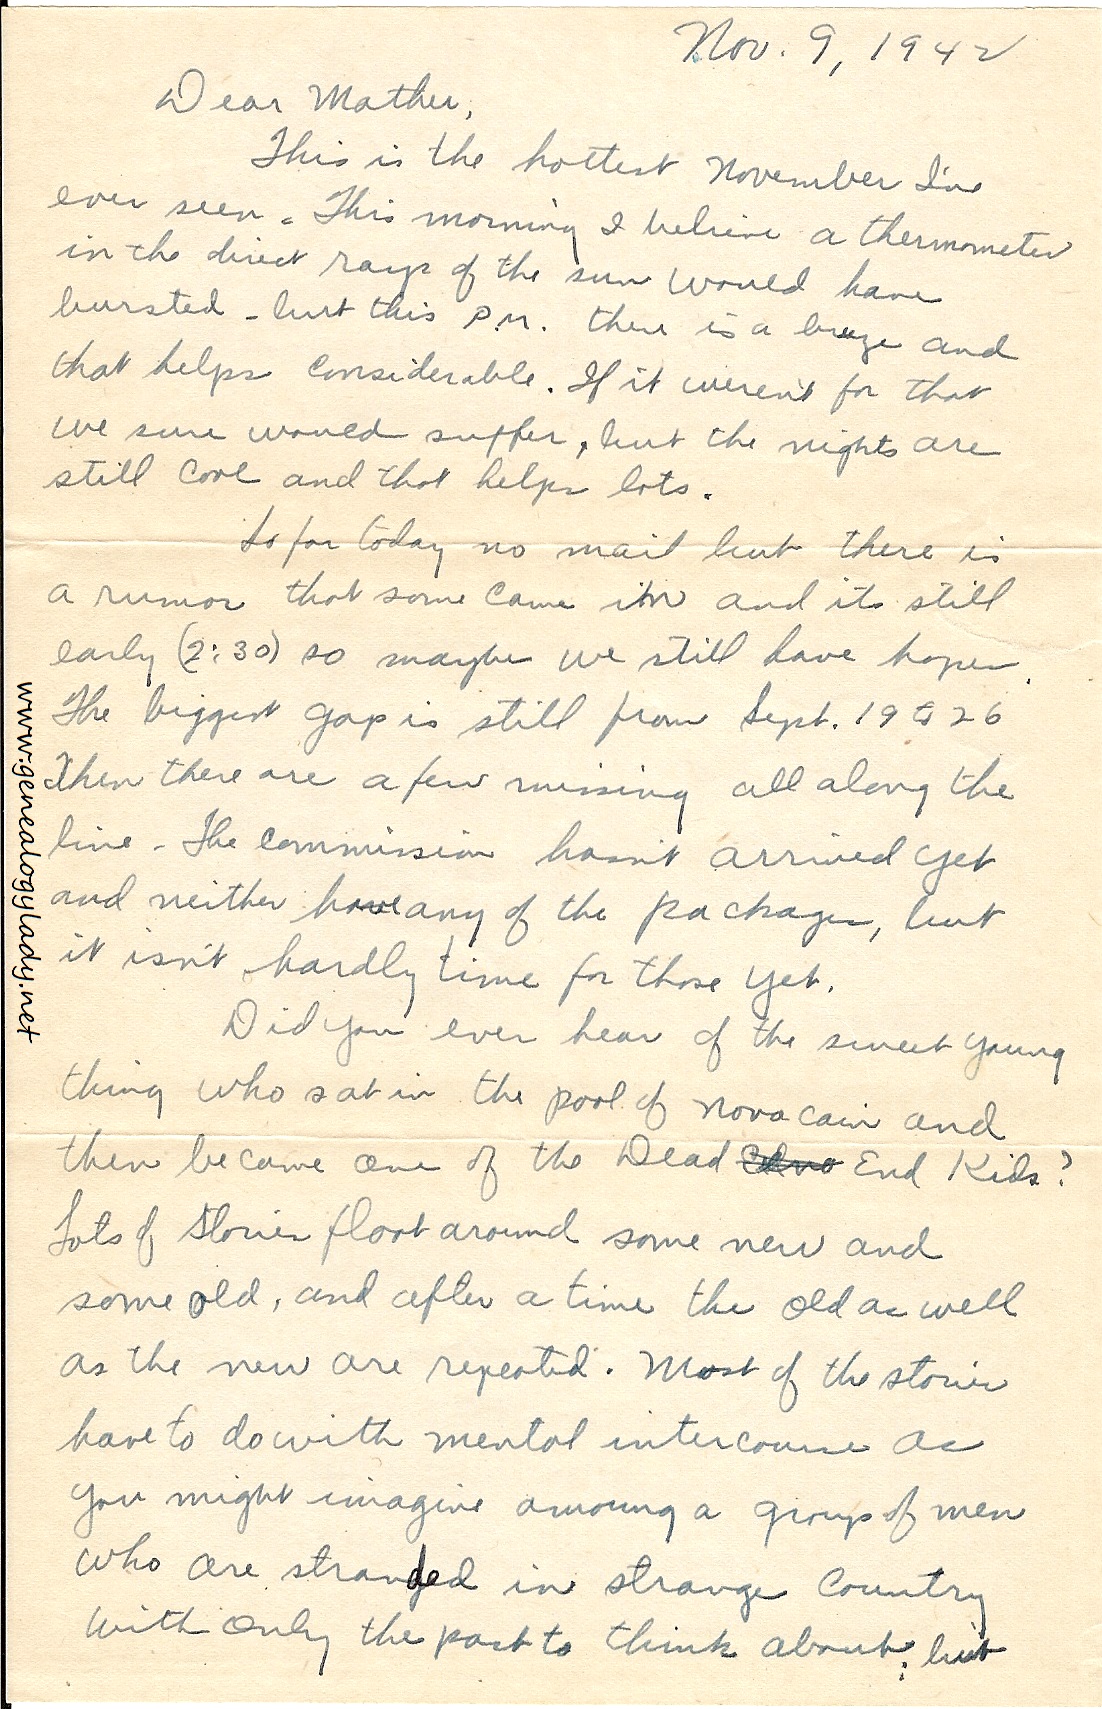 Nov. 9, 1942
Dear Mother,
This is the hottest November I've
ever seen. This morning I believe a thermometer
in the direct rays of the sun would have
bursted - but this p.m. there is a breeze and
that helps considerable. If it weren't for that
we sure would suffer, but the nights are
still cool and that helps lots.
So far today no mail but there is
a rumor that some came in and its still
early (2:30) so maybe we still have hopes.
The biggest gap is still from Sept. 19 to 26
Then there are a few missing all along the
line. The commission hasn't arrived yet
and neither have any of the packages, but
it isn't hardly time for those yet.
Did you ever hear of the sweet young
thing who sat in the pool of novacain and
then became one of the Dead End Kids?
Lots of stories float around some new and
some old, and after a time the old as well
as the new are repeated. Most of the stories
have to do with mental intercourse as
you might imagine amoung a group of men
who are stranded in strange country
with only the past to think about; but
www.genealogylady.net